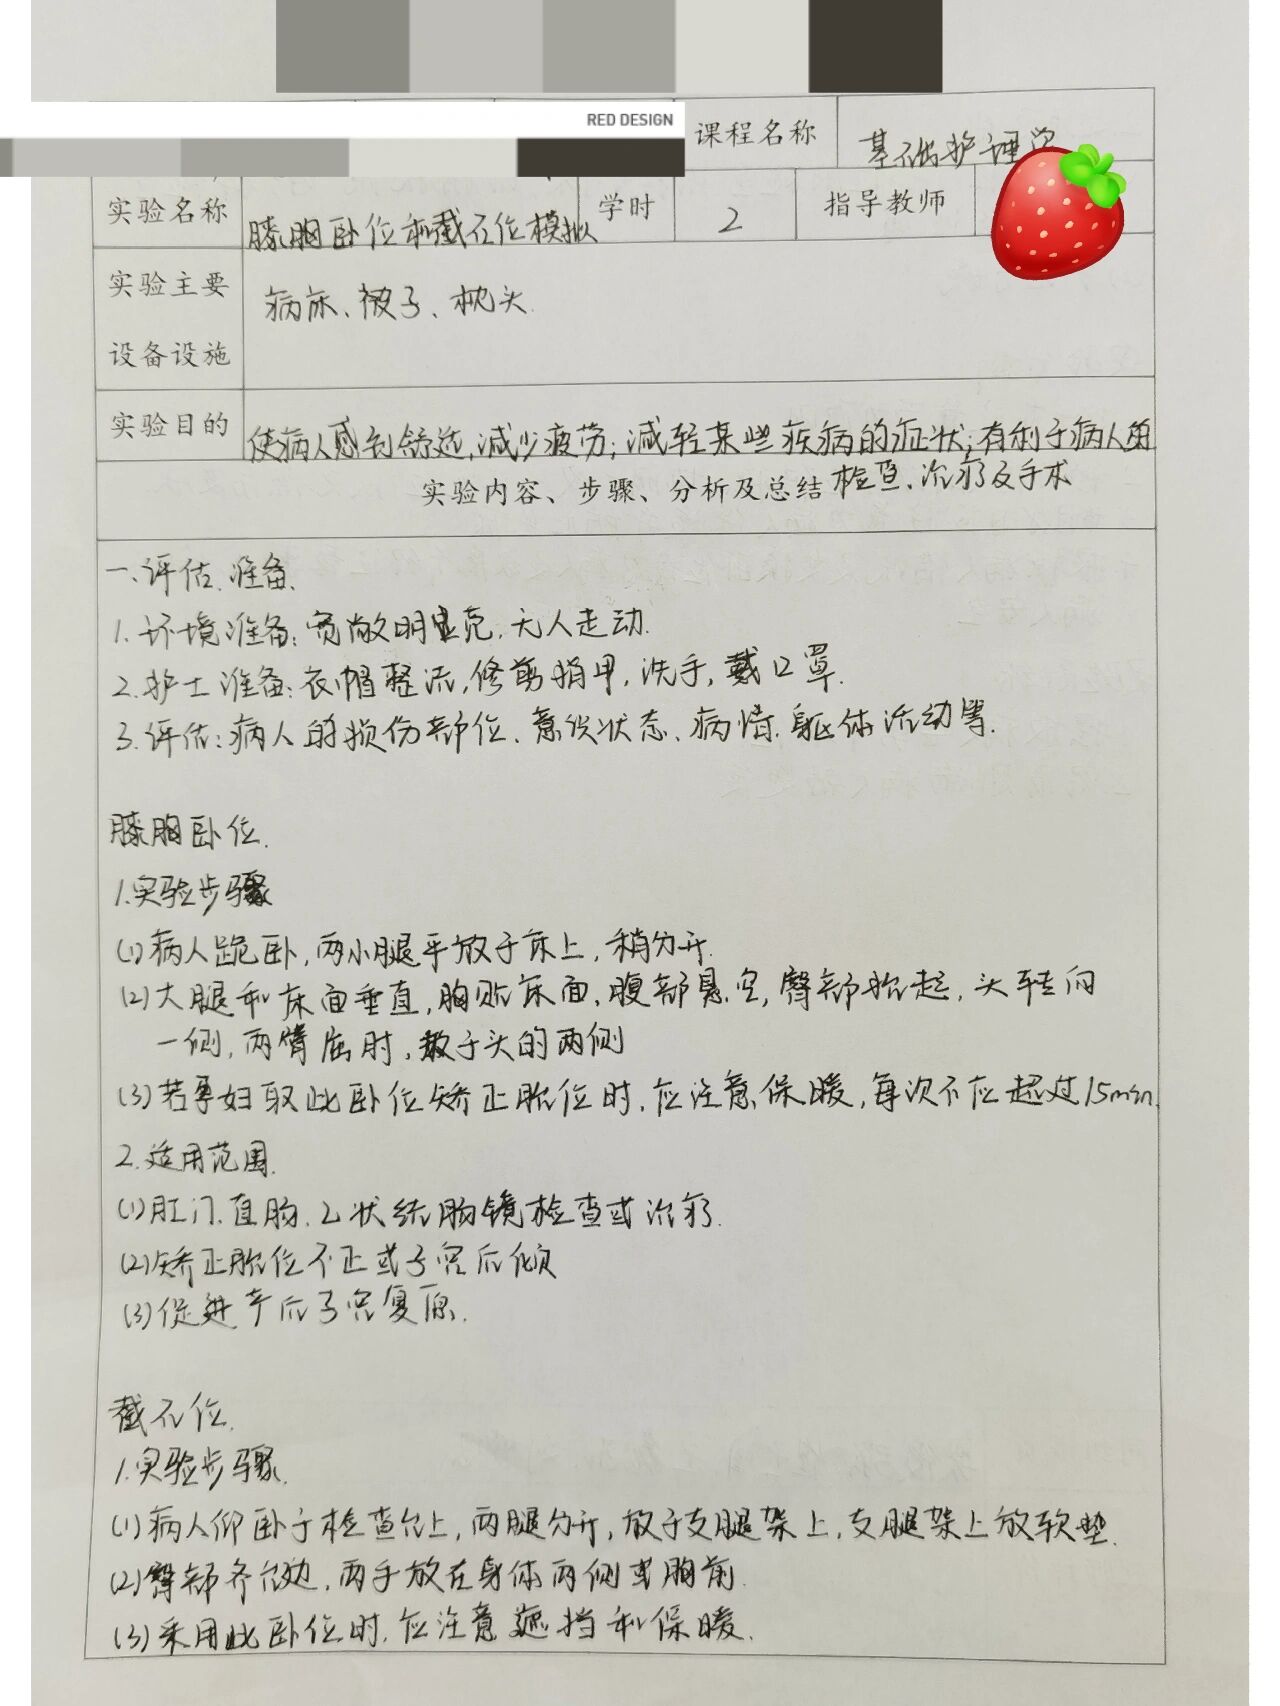 RED DESIGN
课程名称 基础护理学
实验名称 膝胸卧位和截石位模拟 学时 2 指导教师
实验主要 病床、被子、枕头.
设备设施
实验目的 使病人感到舒适,减少疲劳;减轻某些疾病的症状;有利于病人的
实验内容、步骤、分析及总结 检查、治疗及手术
一、评估、准备.
1.环境准备:宽敞明亮,无人走动.
2.护士准备:衣帽整洁,修剪指甲,洗手,戴口罩.
3.评估:病人的损伤部位、意识状态、病情、躯体活动等.
膝胸卧位.
1.实验步骤
(1)病人跪卧,两小腿平放于床上,稍分开.
(2)大腿和床面垂直,胸贴床面,腹部悬空,臀部抬起,头转向
一侧,两臂屈肘,放于头的两侧
(3)若孕妇取此卧位矫正胎位时,应注意保暖,每次不应超过15min.
2.适用范围.
(1)肛门、直肠、乙状结肠镜检查或治疗.
(2)矫正胎位不正或子宫后倾
(3)促进产后子宫复原.
截石位.
1.实验步骤.
(1)病人仰卧于检查台上,两腿分开,放于支腿架上,支腿架上放软垫.
(2)臀部齐台边,两手放在身体两侧或胸前.
(3)采用此卧位时,应注意遮挡和保暖.